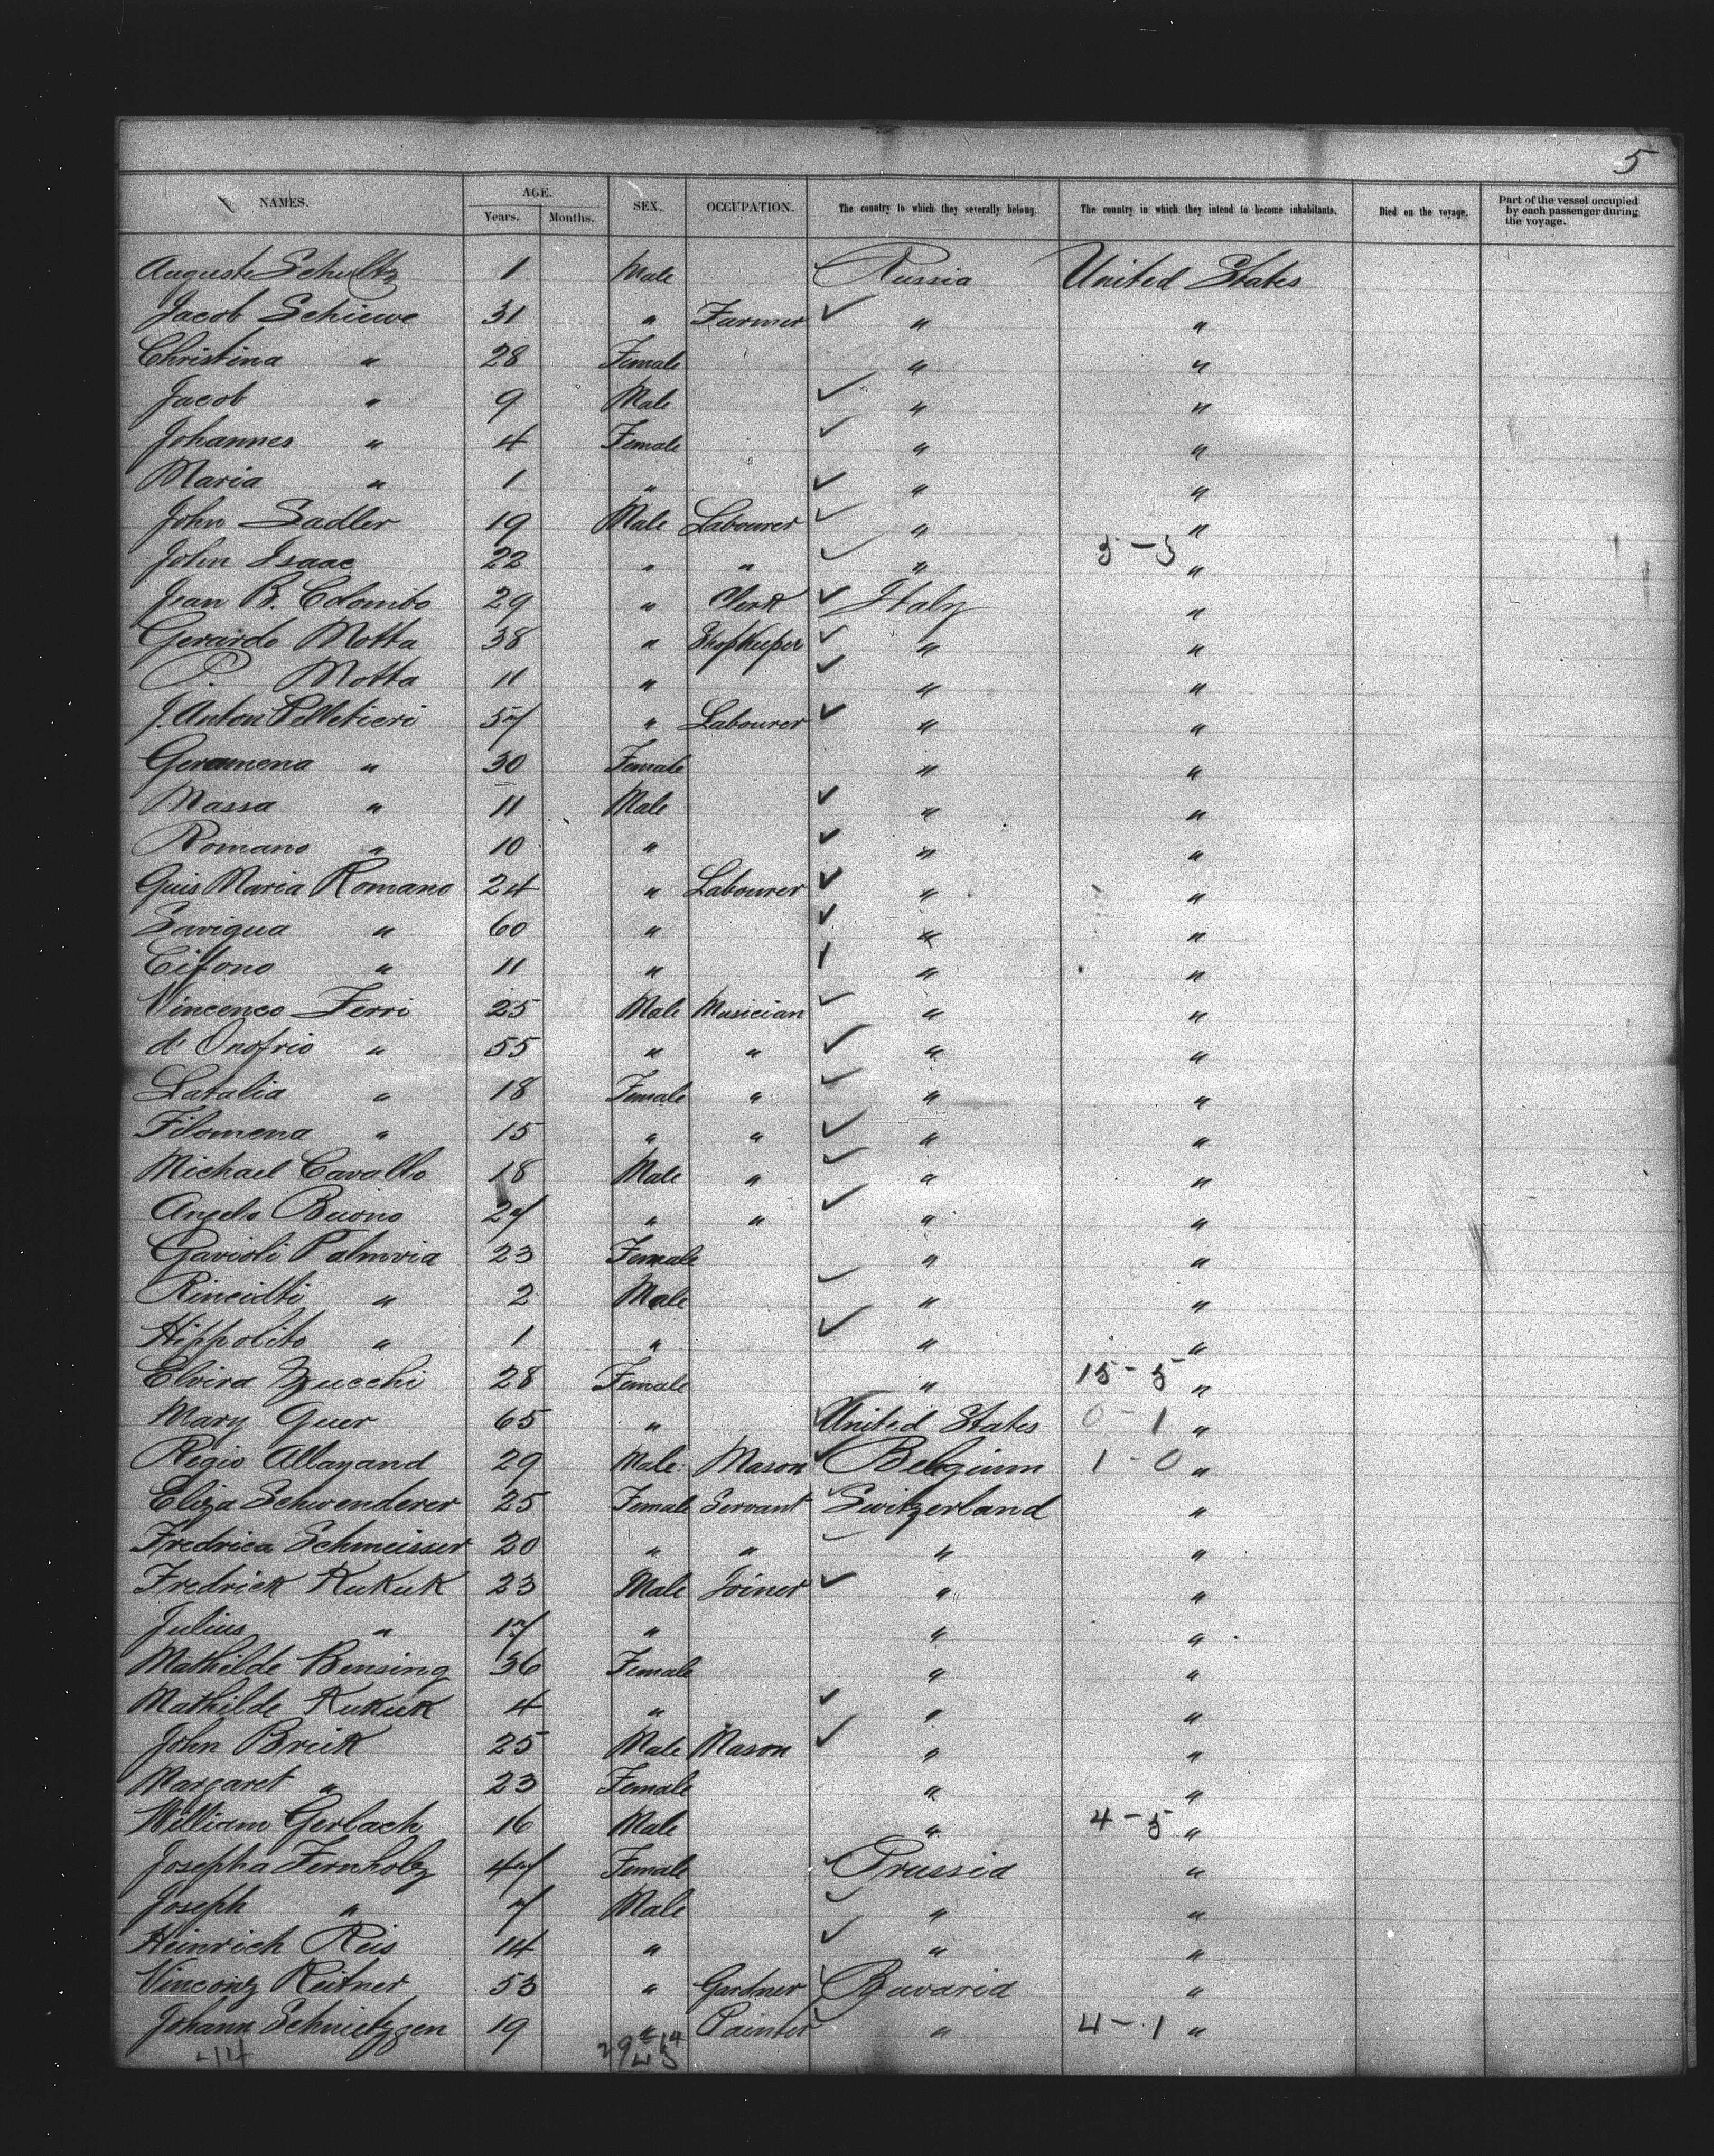 5
NAMES. AGE. SEX. OCCUPATION. The country to which they severally belong. The country in which they intend to become inhabitants. Died on the voyage. Part of the vessel occupied by each passenger during the voyage.
Years. Months.
Auguste Schultz 1 Male Russia United States
Jacob Schiewe 31 " Farmer " "
Christina " 28 Female " "
Jacob " 9 Male " "
Johannes " 4 Female " "
Maria " 1 " " "
John Sadler 19 Male Labourer " "
John Isaac 22 " " " 5-3 "
Jean B. Colombo 29 " Clerk Italy "
Gerardo Motta 38 " Shopkeeper " "
P. Motta 11 " " "
J. Anton Pelletieri 57 " Labourer " "
Geramena " 30 Female " "
Massa " 11 Male " "
Romano " 10 " " "
Guis Maria Romano 24 " Labourer " "
Savigua " 60 " " "
Cifono " 11 " " "
Vincenco Ferri 25 Male Musician " "
d' Onofrio " 55 " " " "
Latalia " 18 Female " " "
Filomena " 15 " " " "
Michael Cavallo 18 Male " " "
Angelo Buono 27 " " " "
Gavioli Palmvia 23 Female " "
" 2 Male " "
Hippolito " 1 " " "
Elvira Zucchi 28 Female " 15-5 "
Mary Guer 65 " United States 0-1 "
Regio Allayand 29 Male Mason Belgium 1-0 "
Eliza Schwenderer 25 Female Servant Switzerland "
Fredrica Schmeisser 20 " " " "
Fredrick Kukuk 23 Male Joiner " "
Julius " 17 " " "
Mathilde Bensing 36 Female " "
Mathilde Kukuk 4 " " "
John Brick 25 Male Mason " "
Margaret " 23 Female " "
William Gerlach 16 Male " 4-5 "
Josepha Fernholz 47 Female Prussia "
Joseph " 7 Male " "
Heinrich Reis 14 " " "
Vinconz Reitner 53 " Gardner Bavaria "
Johann Schnietzgen 19 " Painter " 4-1 "
44 29 14